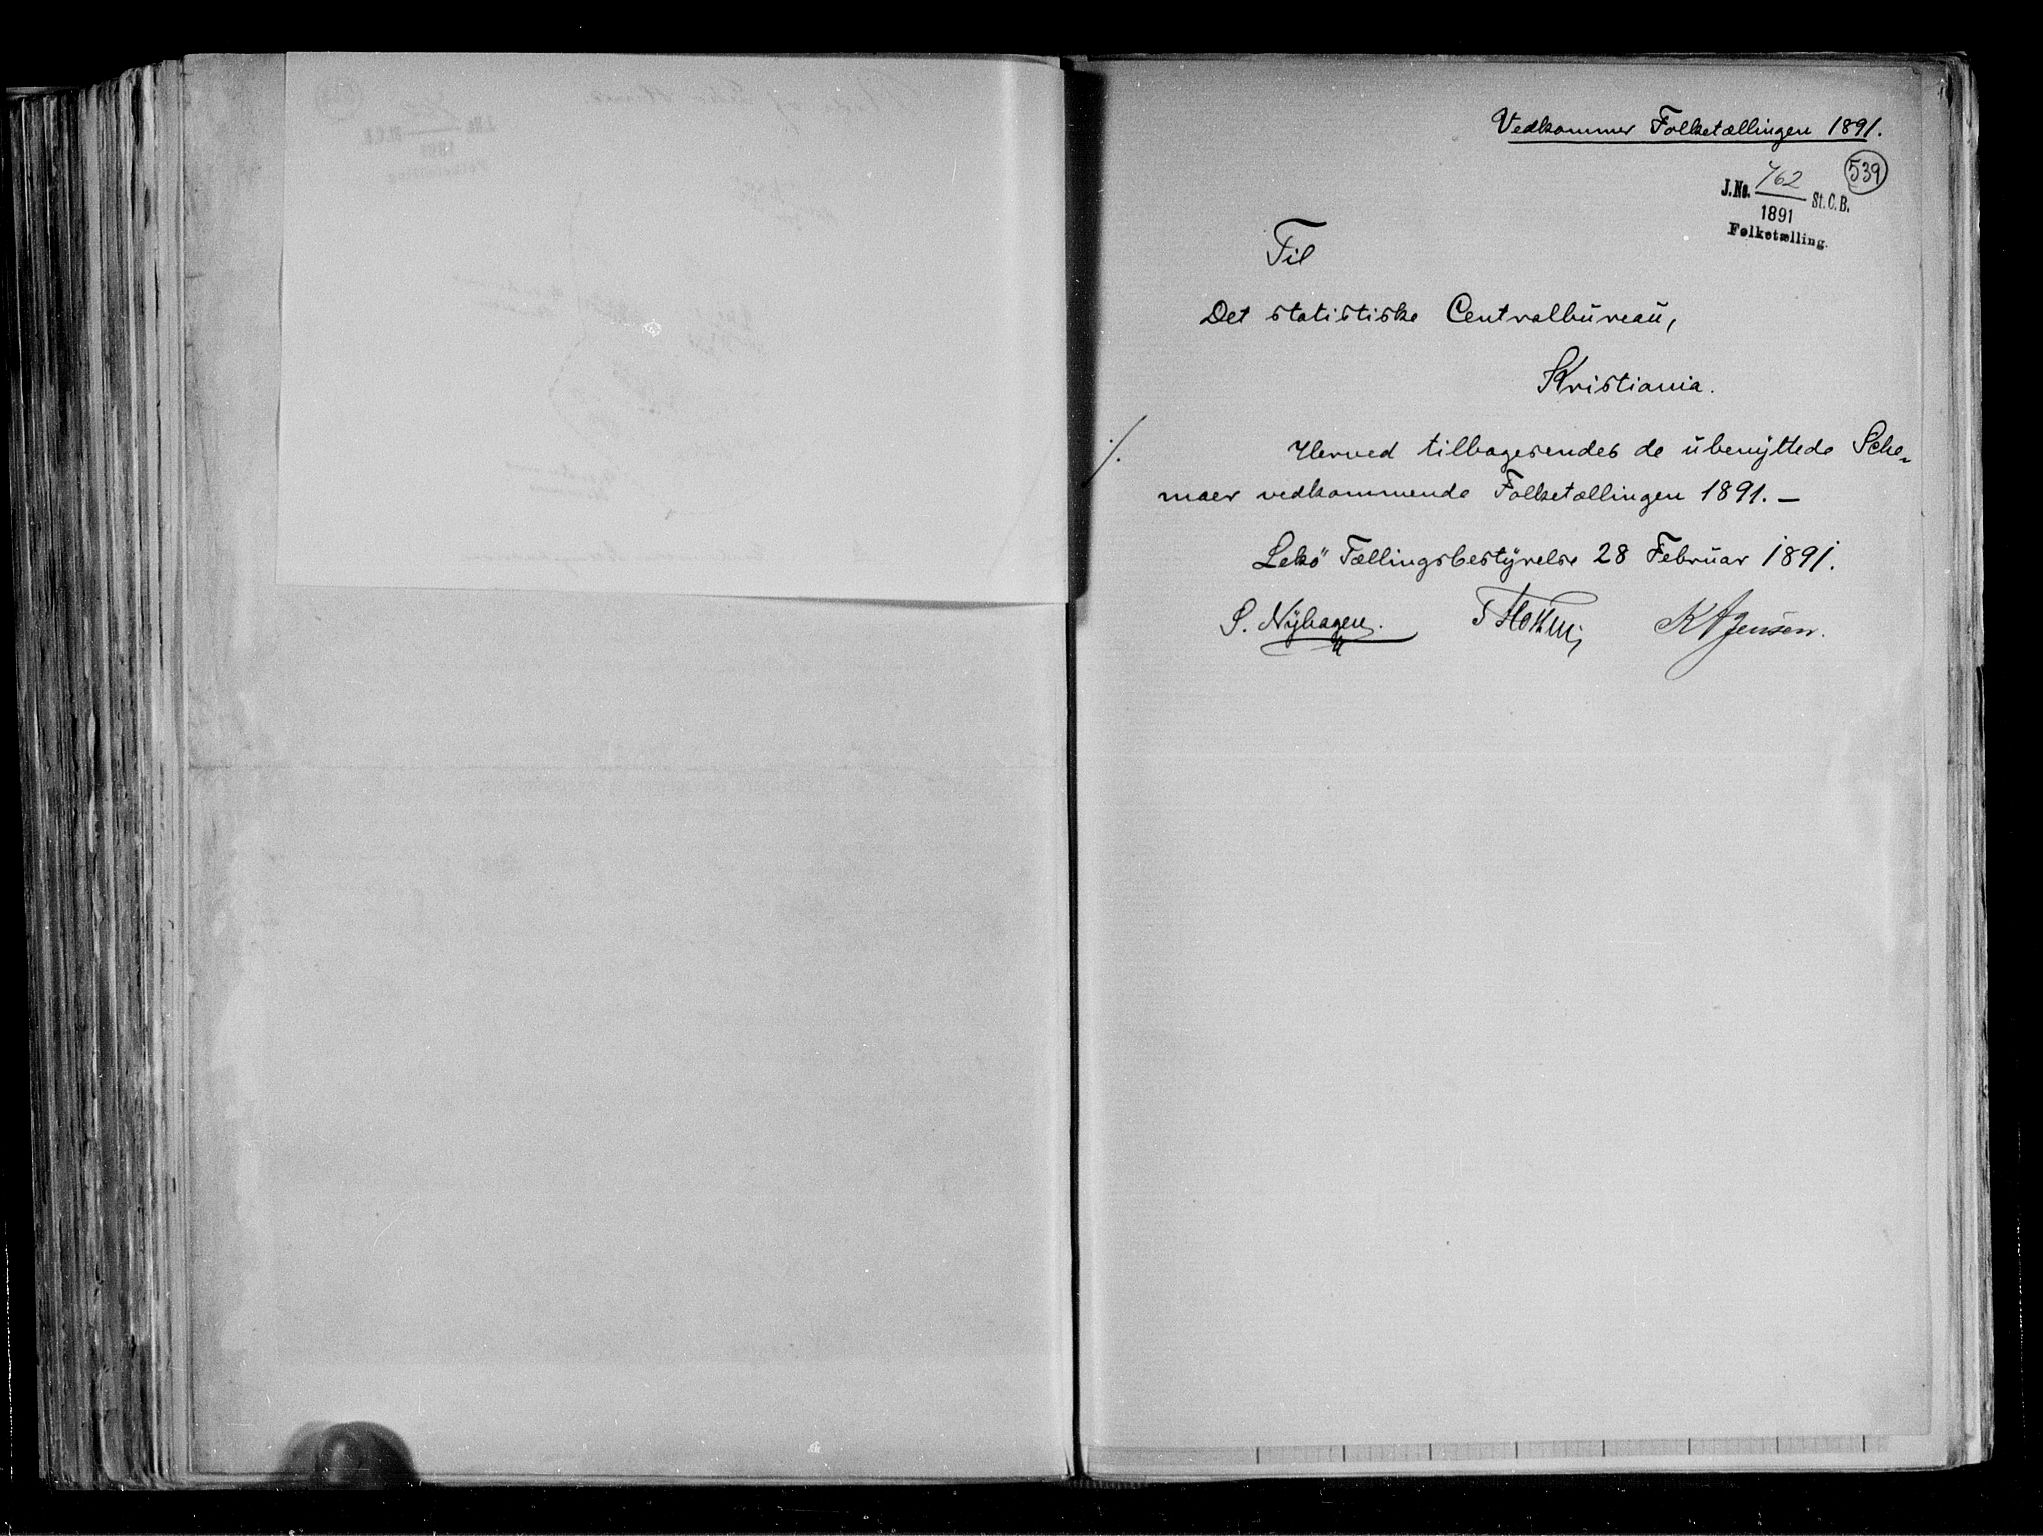 Vedkommer Folketællingen 1891.
539
J.No. 762 St.C.B.
1891
Folketælling.
Til
Det statistiske Centralbureau,
Kristiania.
./.
Herved tilbagesendes de ubenyttede Sche-
maer vedkommende Folketællingen 1891. —
Lekö Tællingsbestyrelse 28 Februar 1891.
S. Nyhagen. K A Jensen.